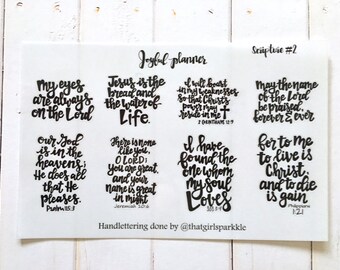 Joyful planner
Scripture #2
My eyes
are always
on the Lord
Jesus is the
bread and
the water of
Life.
I will boast
in my weakness
so that Christ's
power may
reside in me
2 Corinthians 12:9
may the name
of the Lord
be praised,
forever & ever
Our God
is in the
heavens;
He does all
that He
pleases.
Psalm 115:3
There is none
like you,
O LORD;
you are great,
and your
name is great
in might
Jeremiah 10:6
I have
found the
one whom
my soul
Loves
for to me
to live is
Christ,
and to die
is gain
Philippians
1:21
Handlettering done by @thatgirlsparkkle